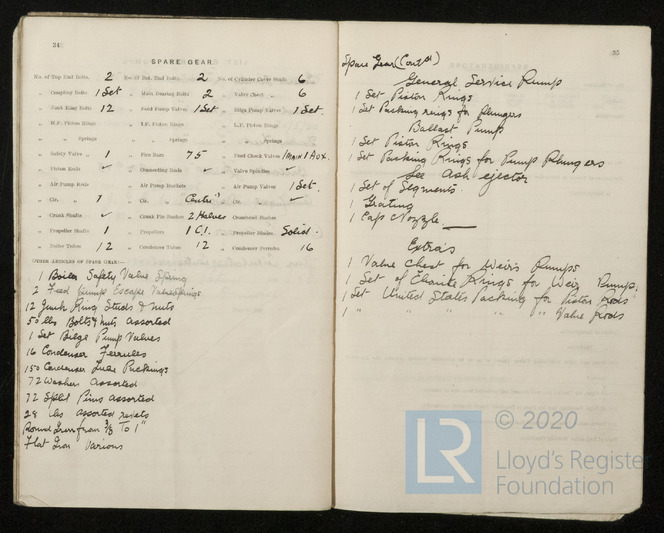 34
SPARE GEAR
No. of Top End Bolts. 2 No. of Bot. End Bolts 2 No. of Cylinder Cover Studs 6
" Coupling Bolts 1 Set " Main Bearing Bolts 2 " Valve Chest " 6
" Junk Ring Bolts 12 " Feed Pump Valves 1 Set " Bilge Pump Valves 1 Set.
" H.P. Piston Rings " I.P. Piston Rings " L.P. Piston Rings
" " Springs " " Springs " " Springs
" Safety Valve " 1 " Fire Bars 75 " Feed Check Valves 1 Main 1 Aux.
" Piston Rods ✓ " Connecting Rods ✓ " Valve Spindles ✓
" Air Pump Rods " Air Pump Buckets " Air Pump Valves 1 Set.
" Cir. " 1 " Cir. " " Cir. " ✓
" Crank Shafts ✓ " Crank Pin Bushes 2 Halves " Crosshead Bushes
" Propeller Shafts 1 " Propellers 1 C.I. " Propeller Blades Solid.
" Boiler Tubes 12 " Condenser Tubes 12 " Condenser Ferrules 16
OTHER ARTICLES OF SPARE GEAR:—
1 Boiler Safety Valve Spring
2 Feed Pump Escape Valve Springs
12 Junk Ring Studs & Nuts
50 lbs Bolts & Nuts assorted
1 Set Bilge Pump Valves
16 Condenser Ferrules
150 Condenser Tube Packings
72 Washers Assorted
72 Split Pins assorted
28 lbs assorted rivets
Round Iron from 3/8 To 1"
Flat Iron Various
35
Spare Gear (Contd)
General Service Pump
1 Set Piston Rings
1 Set Packing rings for plungers
Ballast Pump
1 Set Piston Rings
1 Set Packing Rings for Pump Plungers
See Ash ejector
1 Set of Segments
1 Grating
1 Cap Nozzle
Extras
1 Valve Chest for Weirs Pumps
1 Set of Ebonite Rings for Weir Pump
1 Set United States Packing for Piston rods
1 " " " " " Valve rods
© 2020
LR
Lloyd's Register
Foundation